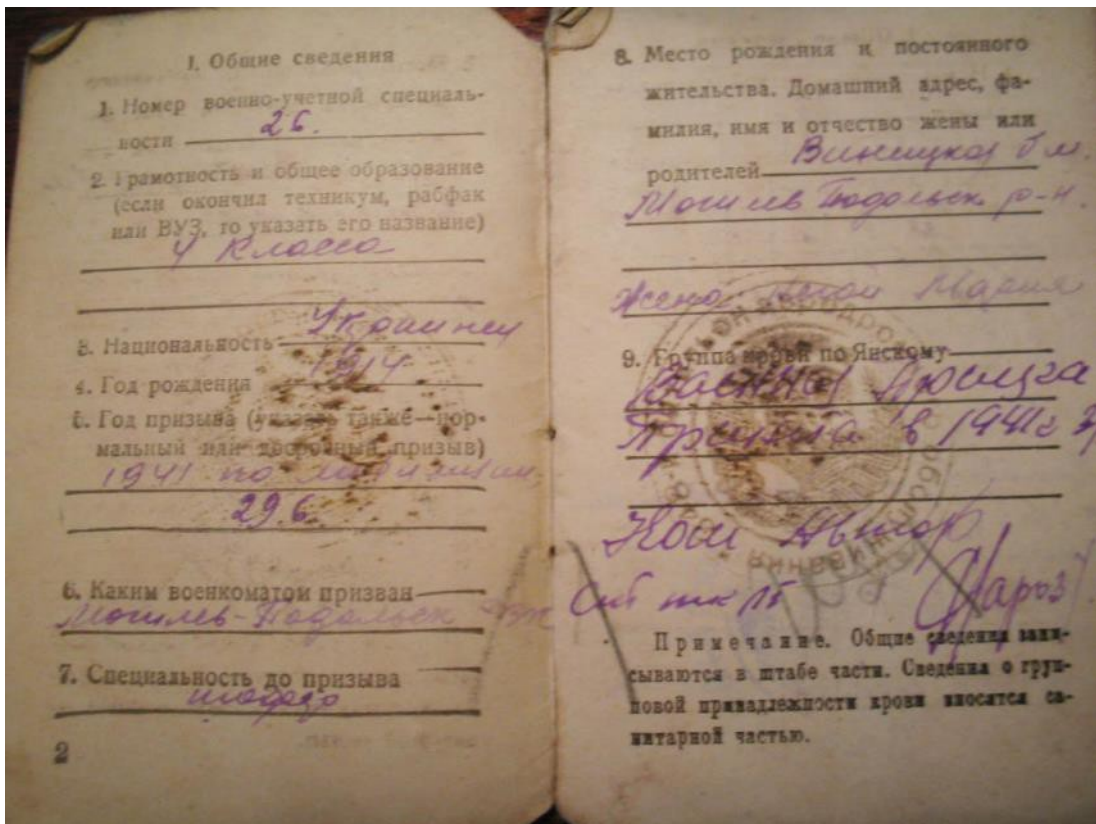 I. Общие сведения
1. Номер военно-учетной специаль-
ности 26.
2. Грамотность и общее образование
(если окончил техникум, рабфак
или ВУЗ, то указать его название)
4 класса
3. Национальность Украинец
4. Год рождения 1914
5. Год призыва (указать также—нор-
мальный или досрочный призыв)
1941 по
29.6
6. Каким военкоматом призван
Могилев-Подольск РВК
7. Специальность до призыва
шофер
2
8. Место рождения и постоянного
жительства. Домашний адрес, фа-
милия, имя и отчество жены или
родителей Виницкая обл.
Могилев Подольск р-н.
Жена Мария
9. Группа крови по Янскому
Военная Присяга
Принята в 1941г
Нач
Примечание. Общие сведения запи-
сываются в штабе части. Сведения о груп-
повой принадлежности крови вносятся са-
нитарной частью.